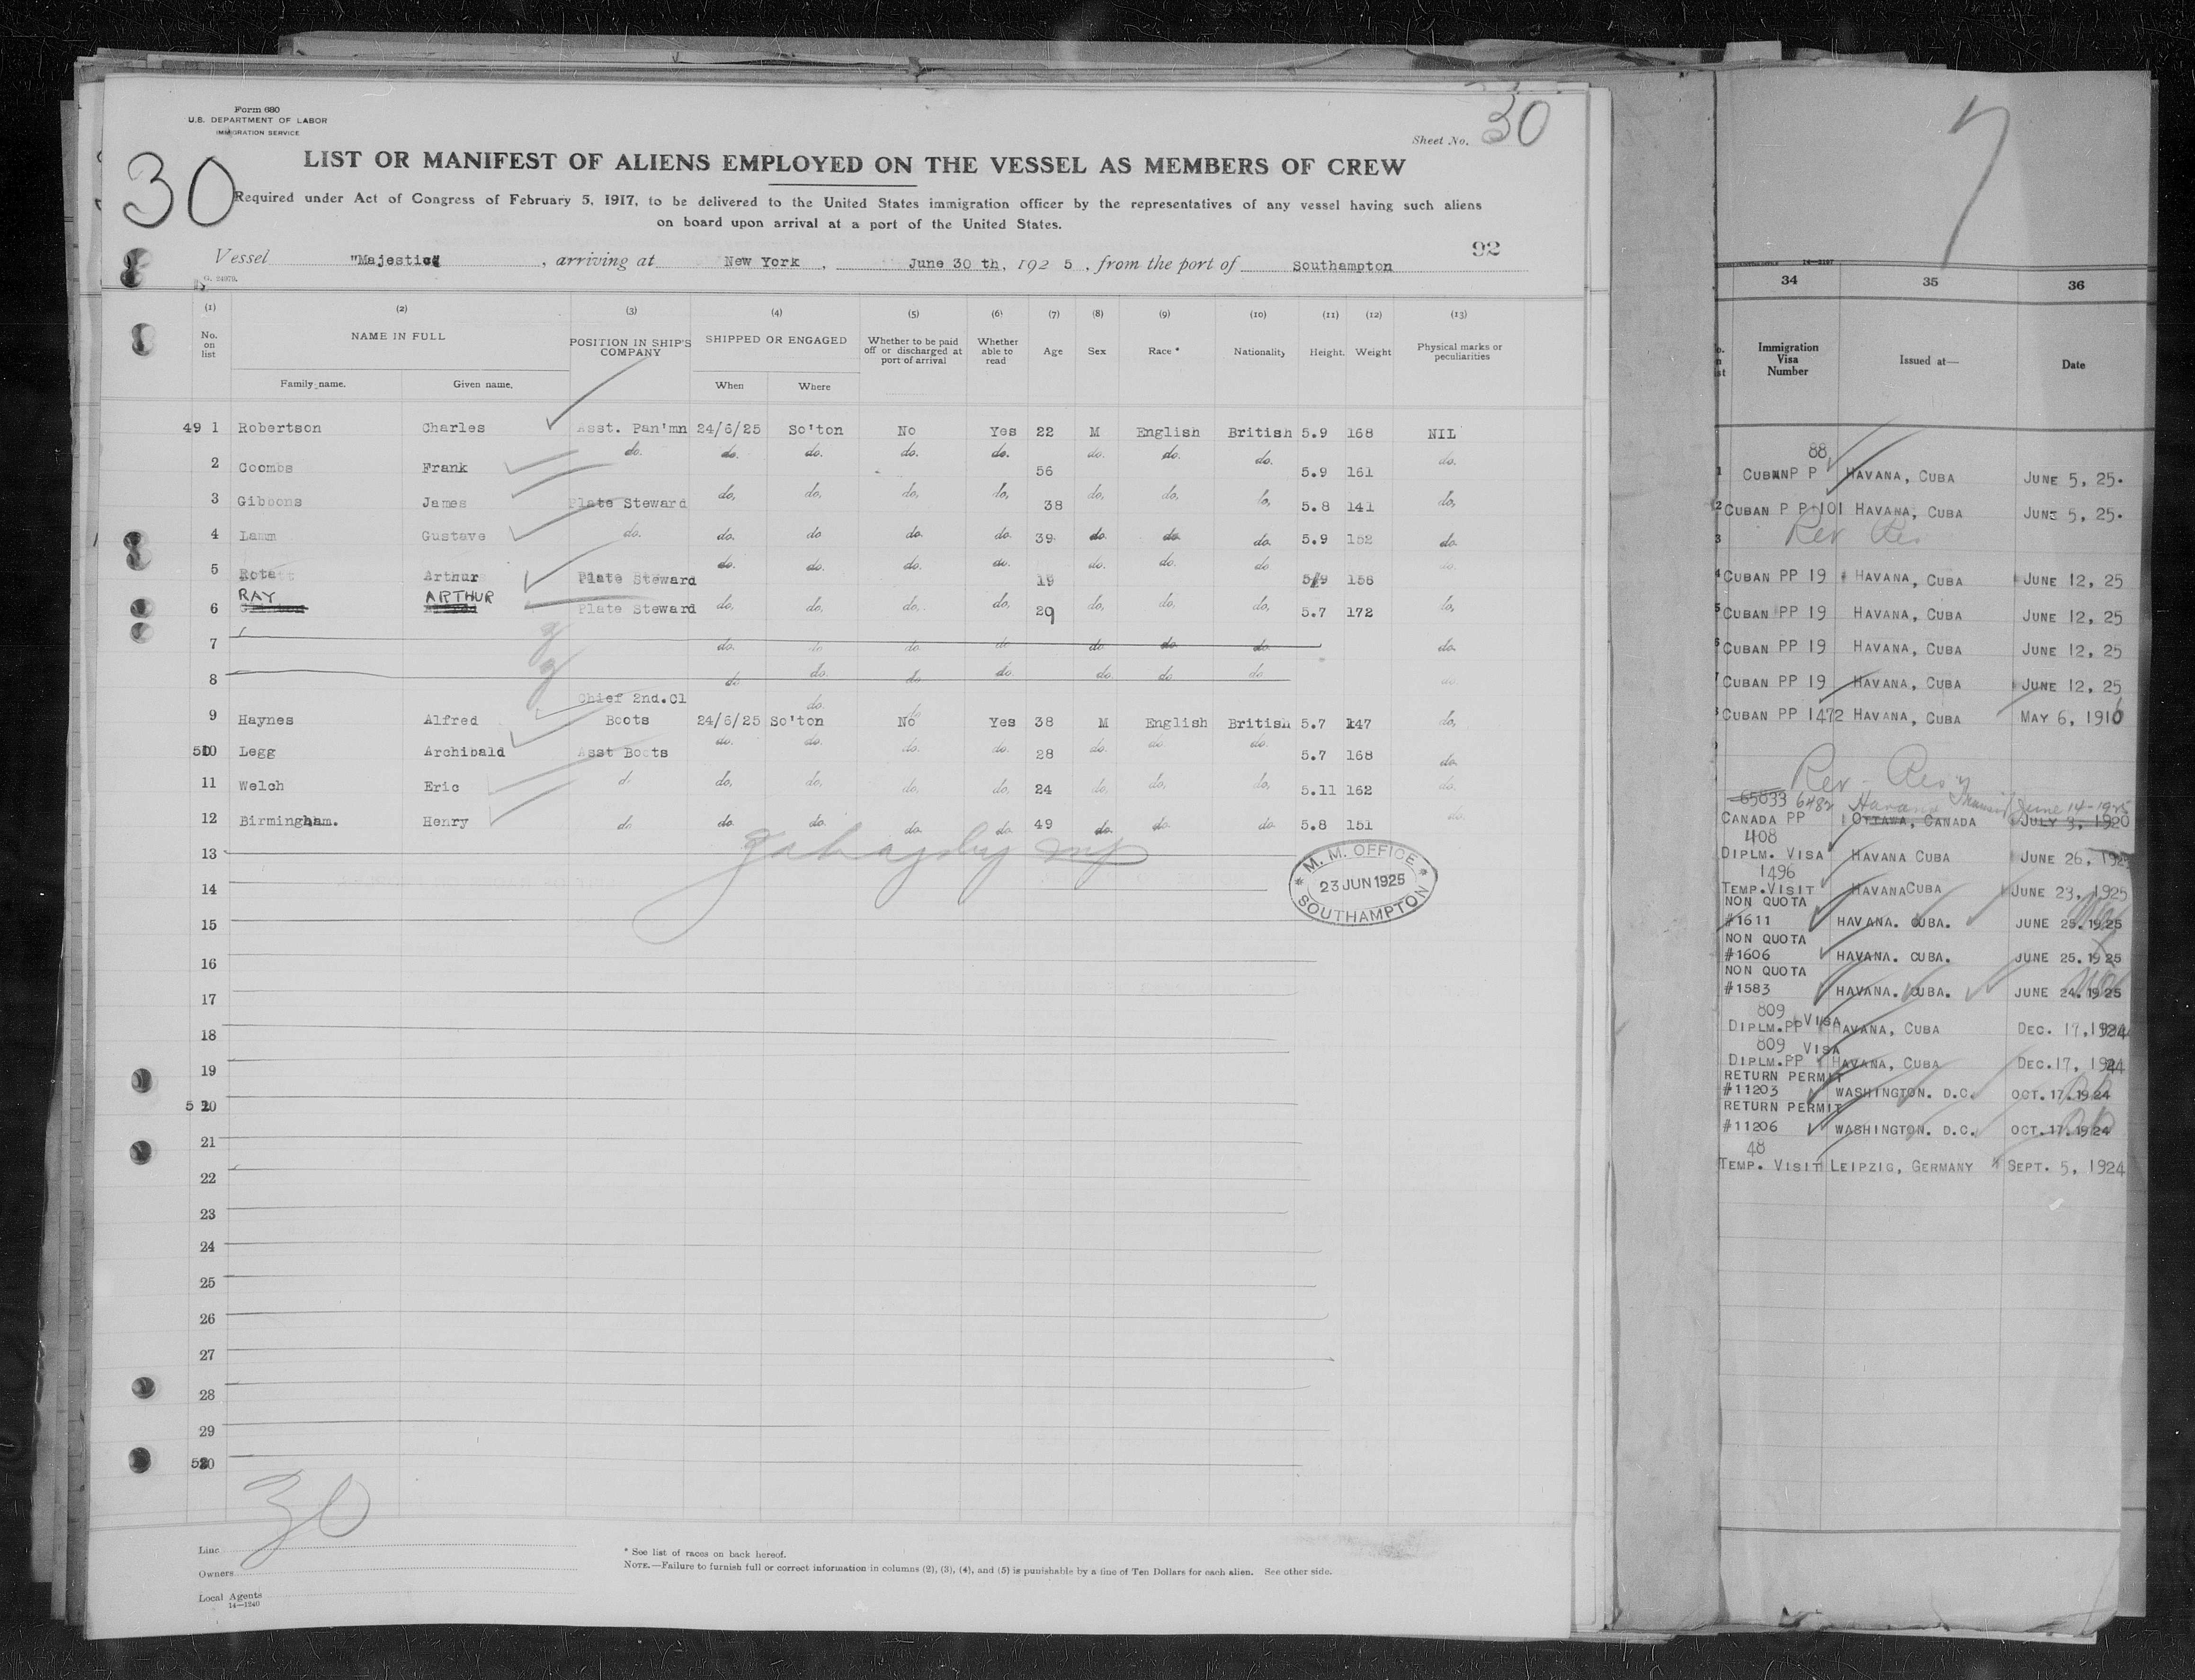 Form 680
U.S. DEPARTMENT OF LABOR
IMMIGRATION SERVICE
30
Sheet No. 30
LIST OR MANIFEST OF ALIENS EMPLOYED ON THE VESSEL AS MEMBERS OF CREW
Required under Act of Congress of February 5, 1917, to be delivered to the United States immigration officer by the representatives of any vessel having such aliens
on board upon arrival at a port of the United States.
92
Vessel "Majestic" , arriving at New York , June 30 th, 192 5 , from the port of Southampton
(1) (2) (3) (4) (5) (6) (7) (8) (9) (10) (11) (12) (13)
No. on list NAME IN FULL POSITION IN SHIP'S COMPANY SHIPPED OR ENGAGED Whether to be paid off or discharged at port of arrival Whether able to read Age Sex Race * Nationality Height. Weight Physical marks or peculiarities
Family name. Given name. When Where
49 1 Robertson Charles Asst. Pan'mn 24/6/25 So'ton No Yes 22 M English British 5.9 168 NIL
2 Coombs Frank do. do. do. do. do. 56 do. do. do. 5.9 161 do.
3 Gibbons James Plate Steward do, do, do, do, 38 do, do, do, 5.8 141 do,
4 Lamm Gustave do. do. do do. do. 39 do. do. do. 5.9 152 do.
5 Arthur Plate Steward do. do. do. do. 19 do. do. do 5.9 156 do.
6 RAY ARTHUR Plate Steward do, do, do, do, 29 do, do, do, 5.7 172 do,
7 do. do do do do do. do. do.
8 do do. do do. do. do do do.
9 Haynes Alfred Chief 2nd.Cl Boots 24/6/25 So'ton No Yes 38 M English British 5.7 147 do,
10 Legg Archibald Asst Boots do. do. do. do. 28 do. do. do. 5.7 168 do.
11 Welch Eric d. do, do, do, do, 24 do, do, do, 5.11 162 do.
12 Birmingham. Henry do do. do. do. do. 49 do. do. do 5.8 151 do.
13
14
15
16
17
18
19
20
21
22
23
24
25
26
27
28
29
30
M. M. OFFICE
23 JUN 1925
SOUTHAMPTON
30
Line
Owners
Local Agents
14—1240
* See list of races on back hereof.
NOTE.—Failure to furnish full or correct information in columns (2), (3), (4), and (5) is punishable by a fine of Ten Dollars for each alien. See other side.
7
34 35 36
Immigration Visa Number Issued at— Date
88
1 CUBAN P P HAVANA, CUBA JUNE 5, 25.
2 CUBAN P P 101 HAVANA, CUBA JUNE 5, 25.
3
4 CUBAN PP 19 HAVANA, CUBA JUNE 12, 25
5 CUBAN PP 19 HAVANA, CUBA JUNE 12, 25
6 CUBAN PP 19 HAVANA, CUBA JUNE 12, 25
7 CUBAN PP 19 HAVANA, CUBA JUNE 12, 25
8 CUBAN PP 1472 HAVANA, CUBA MAY 6, 1916
65033 6482 Havana June 14-1925
CANADA PP OTTAWA, CANADA JULY 3, 1920
408
DIPLM. VISA HAVANA CUBA JUNE 26, 1925
1496
TEMP. VISIT HAVANA CUBA JUNE 23, 1925
NON QUOTA
#1611 HAVANA. CUBA. JUNE 25. 1925
NON QUOTA
#1606 HAVANA. CUBA. JUNE 25. 1925
NON QUOTA
#1583 HAVANA. CUBA. JUNE 24. 1925
809 VISA
DIPLM.PP HAVANA, CUBA DEC. 17, 1924
809 VISA
DIPLM.PP HAVANA, CUBA DEC. 17, 1924
RETURN PERMIT
#11203 WASHINGTON. D.C. OCT. 17. 1924
RETURN PERMIT
#11206 WASHINGTON. D.C. OCT. 17. 1924
48
TEMP. VISIT LEIPZIG, GERMANY SEPT. 5, 1924